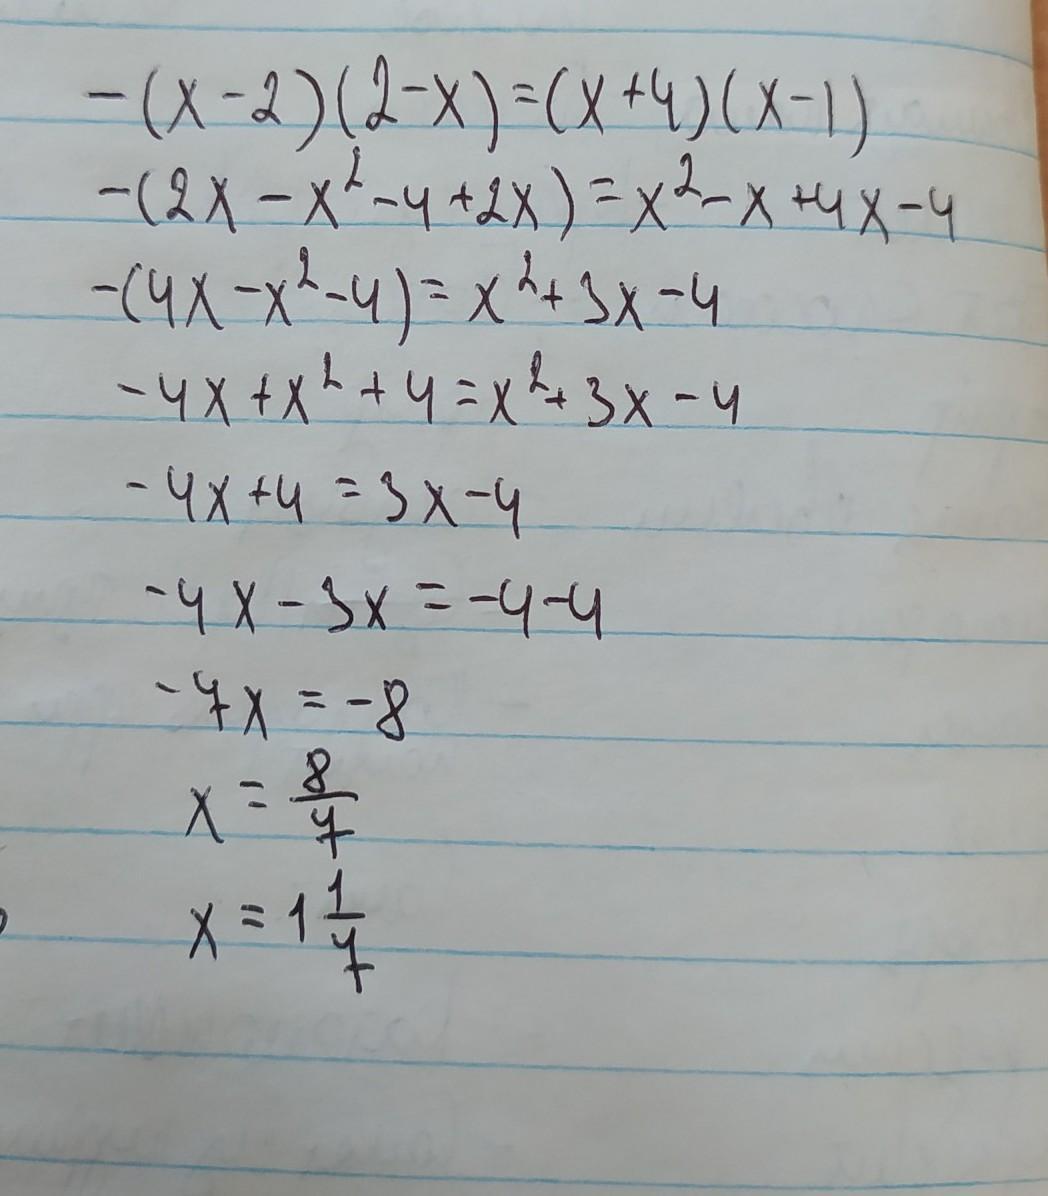 -(x-2)(2-x)=(x+4)(x-1)
-(2x-x²-4+2x)=x²-x+4x-4
-(4x-x²-4)=x²+3x-4
-4x+x²+4=x²+3x-4
-4x+4=3x-4
-4x-3x=-4-4
-7x=-8
x=8/7
x=1 1/7